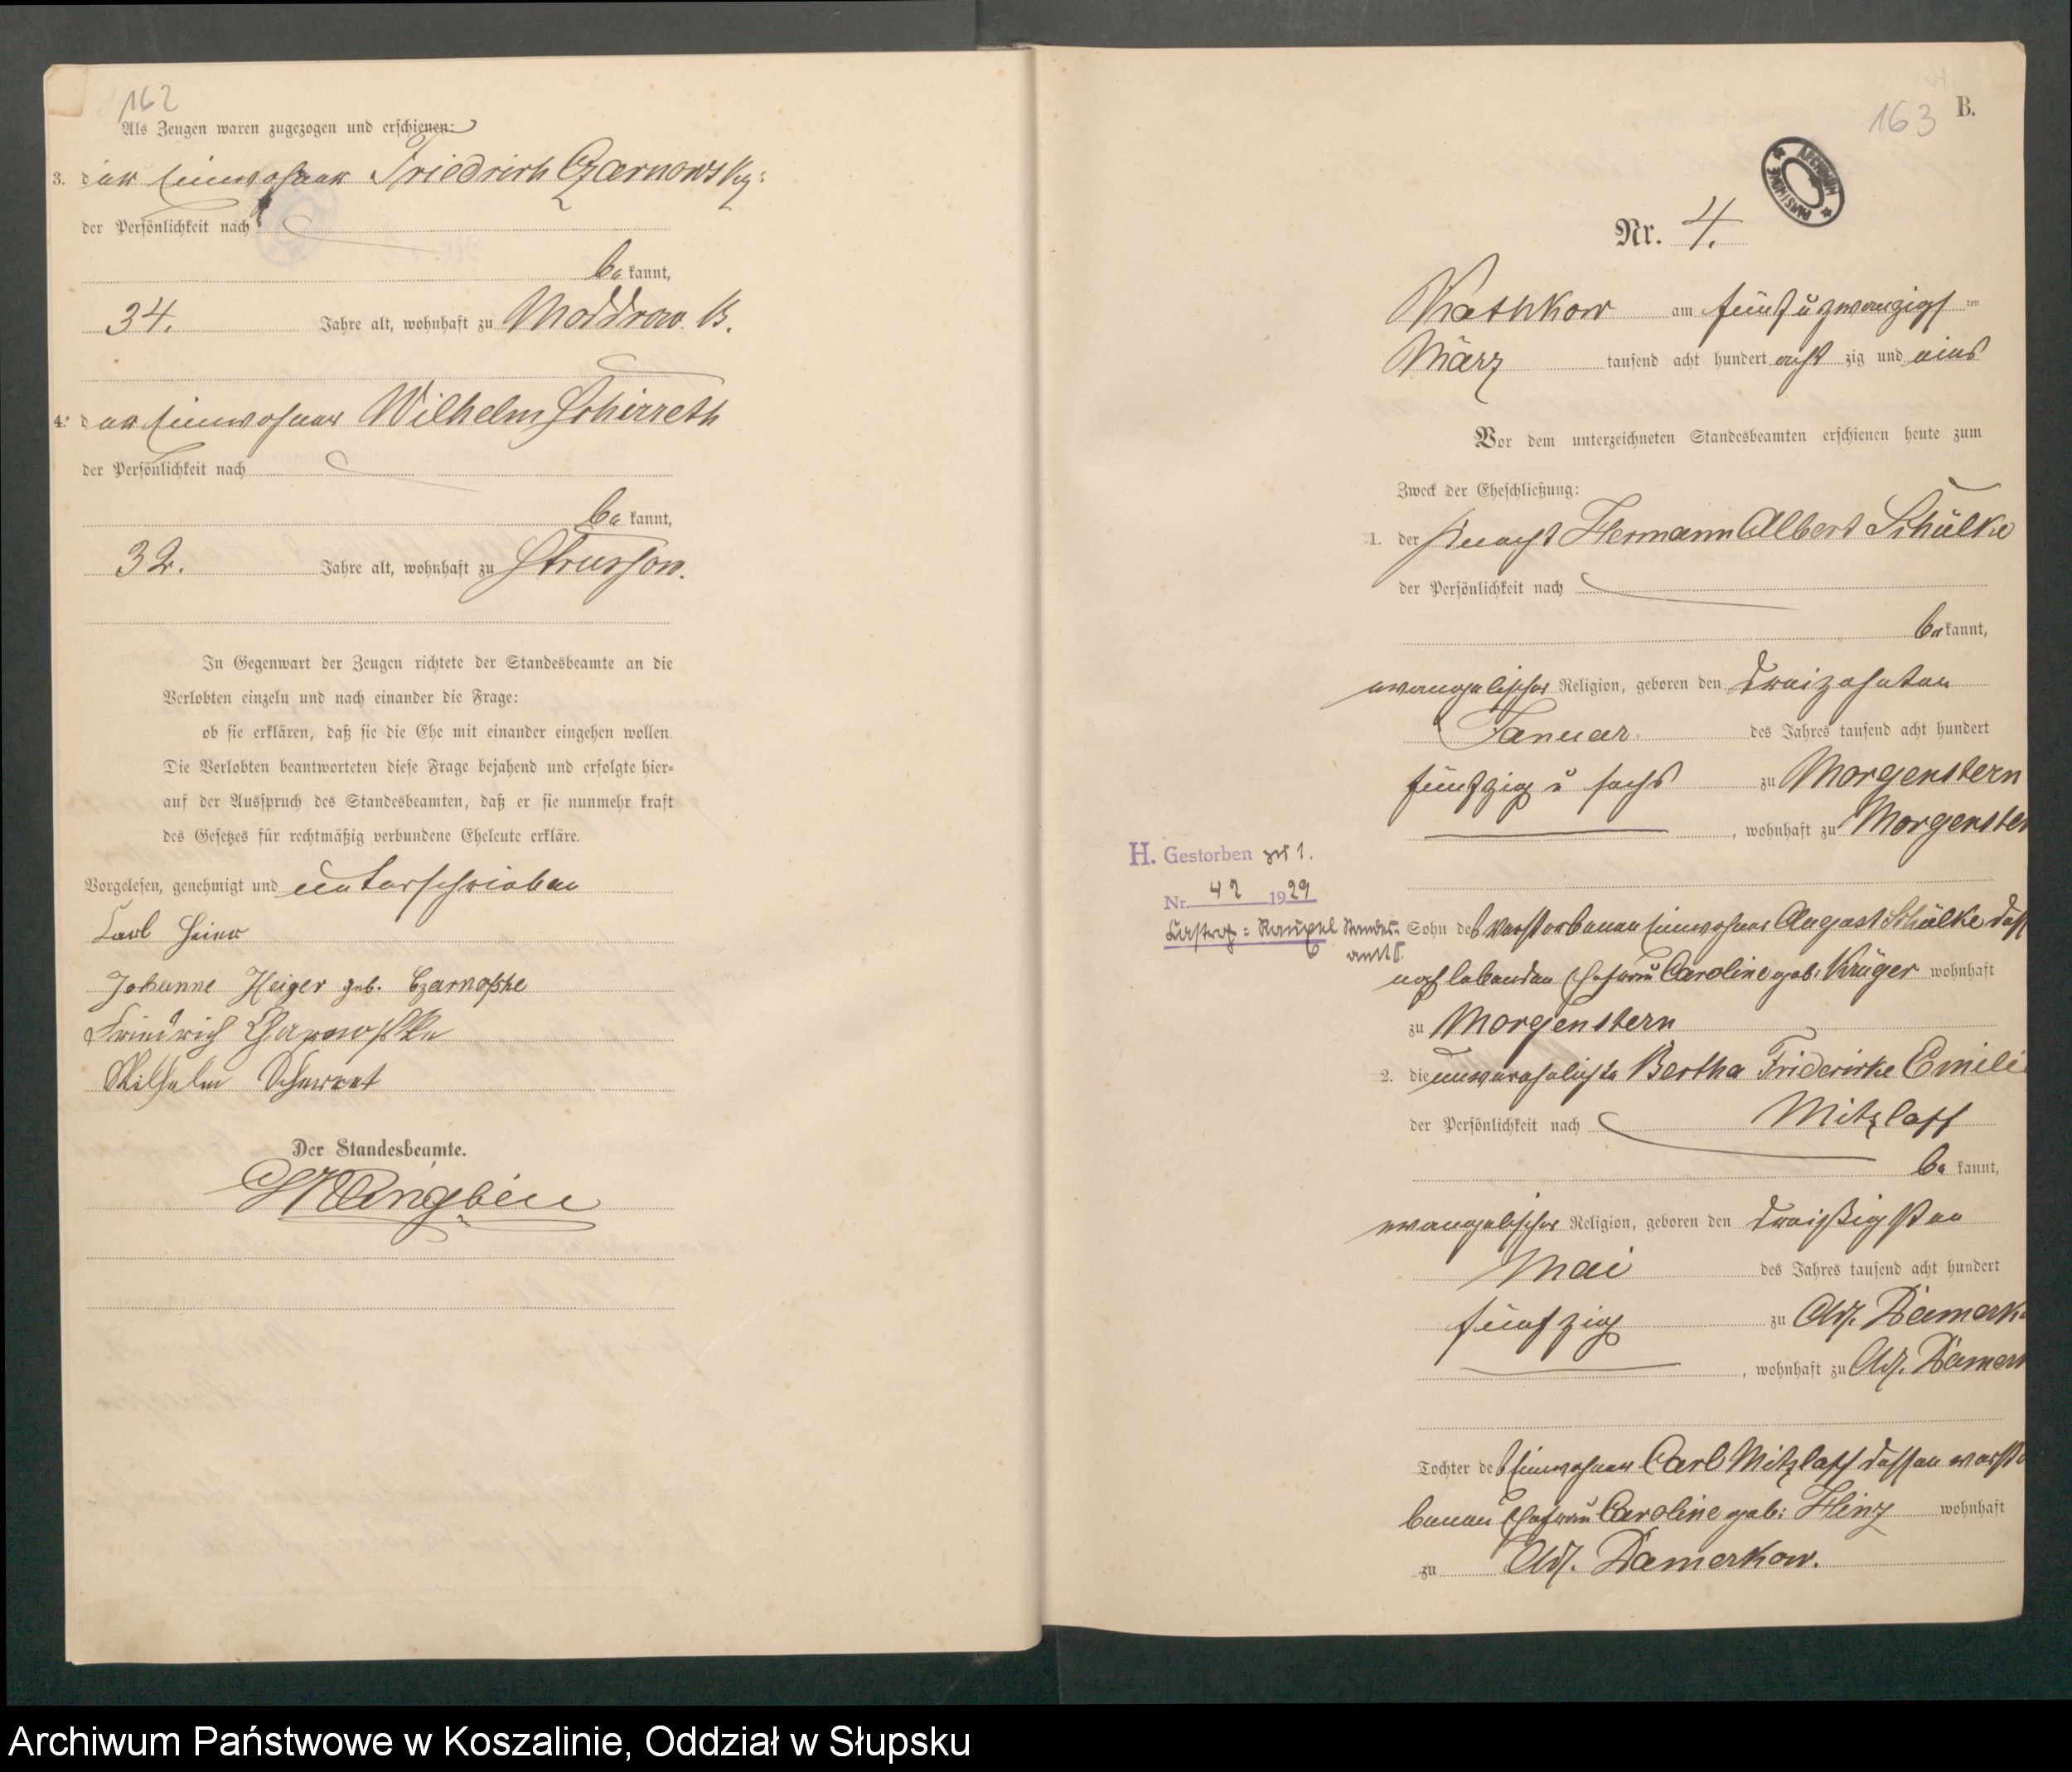 162
Als Zeugen waren zugezogen und erschienen:
3. der Einwohner Friedrich Czarnowsky:
der Persönlichkeit nach
be kannt,
34. Jahre alt, wohnhaft zu Moddrow B.
4. der Einwohner Wilhelm Schirreth
der Persönlichkeit nach
be kannt,
32. Jahre alt, wohnhaft zu Strussow.
In Gegenwart der Zeugen richtete der Standesbeamte an die
Verlobten einzeln und nach einander die Frage:
ob sie erklären, daß sie die Ehe mit einander eingehen wollen.
Die Verlobten beantworteten diese Frage bejahend und erfolgte hier=
auf der Ausspruch des Standesbeamten, daß er sie nunmehr kraft
des Gesetzes für rechtmäßig verbundene Eheleute erkläre.
Vorgelesen, genehmigt und unterschrieben
Carl
Johanne Heiger geb. Czarnoske
Friedrich
Wilhelm
Der Standesbeamte.
163
B.
ARCHIWUM PAŃSTWOWE
Nr. 4.
Wrathkow am fünf u zwanzigs ten
März tausend acht hundert acht zig und eins
Vor dem unterzeichneten Standesbeamten erschienen heute zum
Zweck der Eheschließung:
1. der Knecht Hermann Albert Schülke
der Persönlichkeit nach
be kannt,
evangelischer Religion, geboren den dreizehnten
Januar des Jahres tausend acht hundert
fünfzig u sechs zu Morgenstern
, wohnhaft zu Morgenster
H. Gestorben zu 1.
Nr. 42 1929
Castrop=Rauxel Standes-
amt I.
Sohn des verstorbenen Einwohner August Schülke dess
noch lebenden Ehefrau Caroline geb: Krüger wohnhaft
zu Morgenstern
2. die unverehelichte Bertha Friderike Emili
der Persönlichkeit nach Mitzlaff
be kannt,
evangelischer Religion, geboren den dreißigsten
Mai des Jahres tausend acht hundert
fünfzig zu Adl. Damerko
, wohnhaft zu Adl. Damerk
Tochter des Einwohner Carl Mitzlaff dessen versto
benen Ehefrau Caroline geb: Hinz wohnhaft
zu Adl. Damerkow.
Archiwum Państwowe w Koszalinie, Oddział w Słupsku